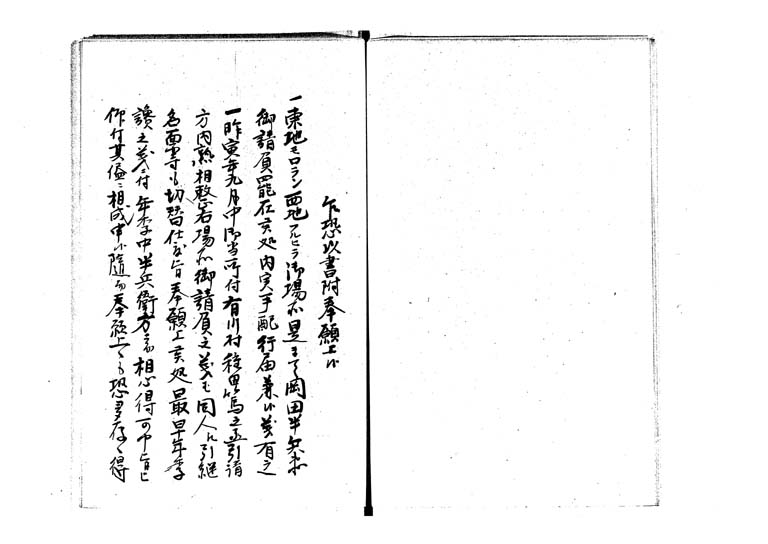 乍恐以書附奉願上候
一東地モロラン西地フルヒラ御場所是まて岡田半兵衛
御請負罷在候処内実手配行届兼候義有之
一昨寅年九月中御当所付有川村種田篤之丞引請
方内熟相整右場所御請負之義も同人江引継
名面等も切替仕度旨奉願上候処最早年季
讓之義ニ付年季中半兵衛方ニ而相心得可申旨被
仰付其儘ニ相成申候随而奉願上候も恐多存候得